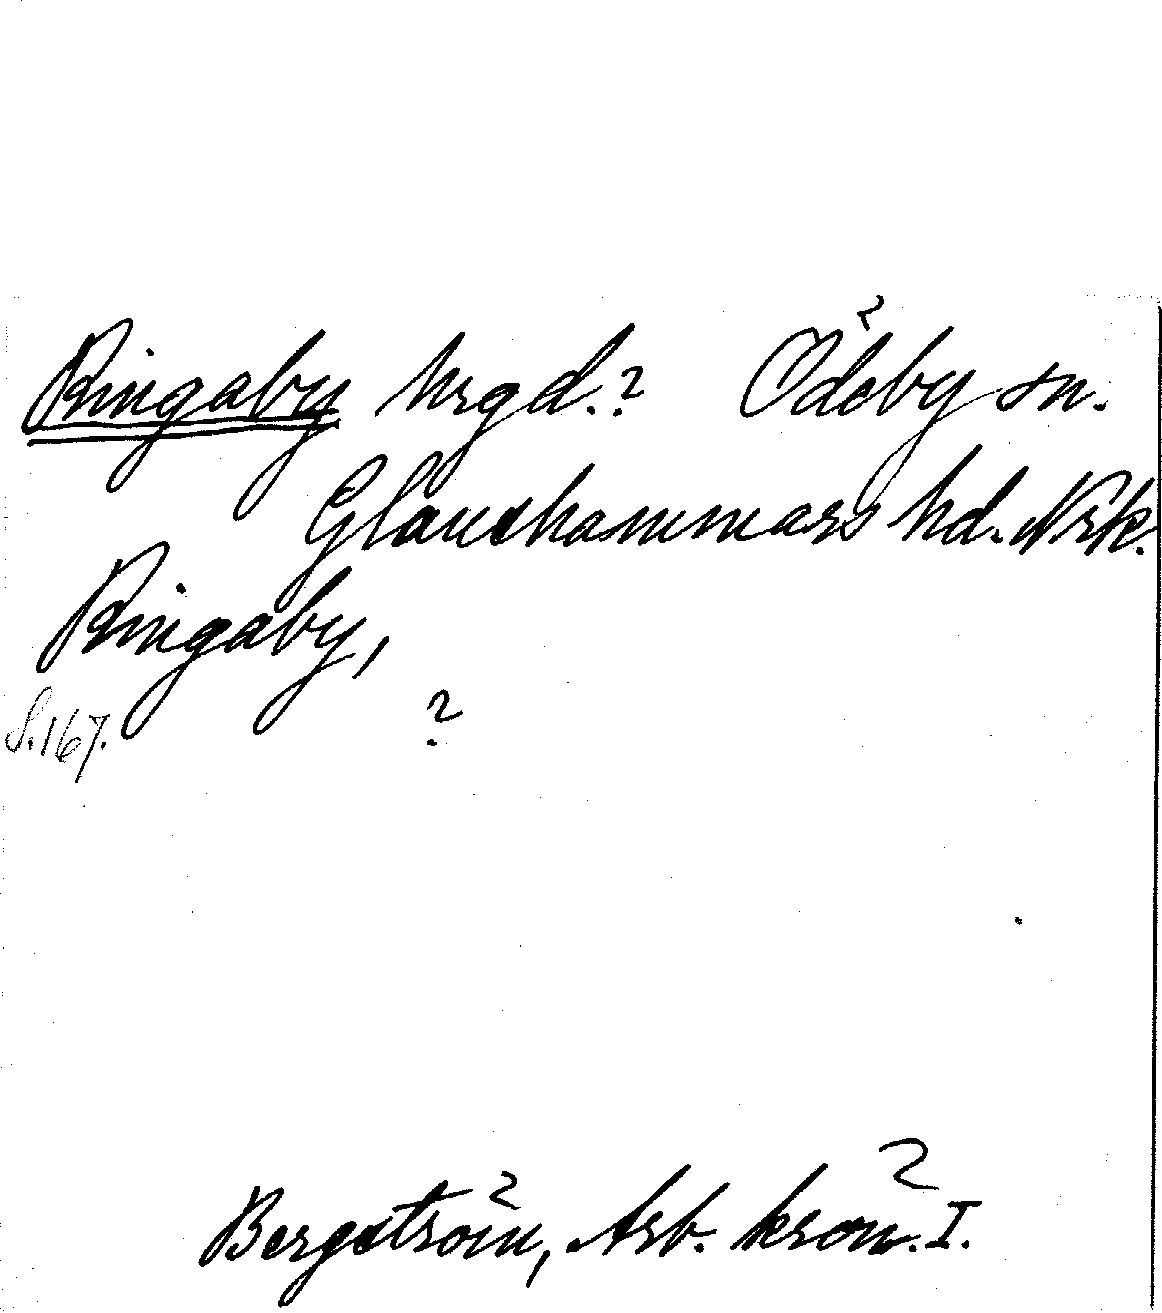 Ringaby hrgd.? Ödeby sn.
Glanshammars hd. Nrk.
Ringaby,
S.167.
?
Bergström, Arb. krön. I.